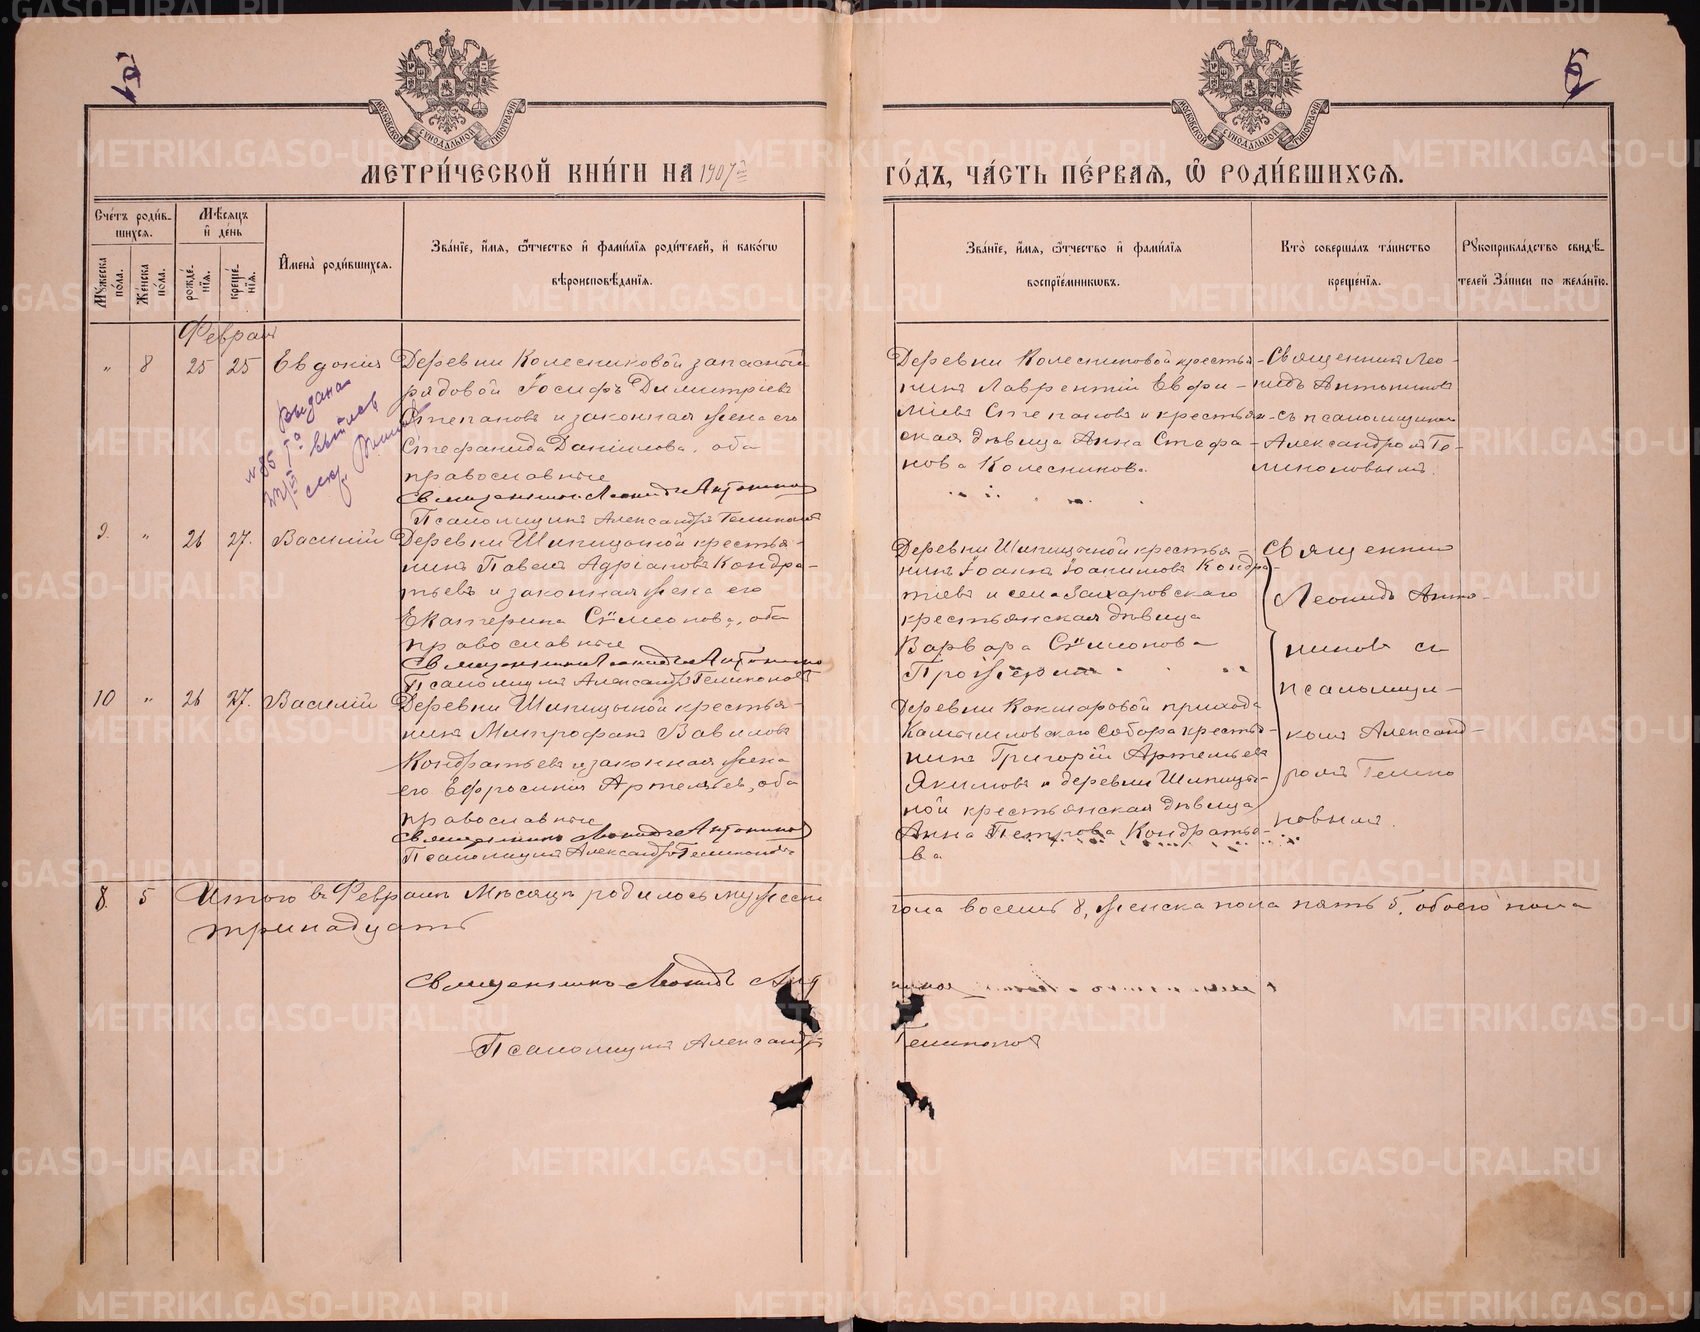 МЕТРИ́ЧЕСКОЙ КНИ́ГИ НА 1907й
ГО́ДЪ, ЧА́СТЬ ПЕ́РВАЯ, Ѡ҆ РОДИ́ВШИХСЯ.
МОСКОВСКОЙ СѴНОДАЛЬНОЙ ТИПОГРАФІИ
МОСКОВСКОЙ СѴНОДАЛЬНОЙ ТИПОГРАФІИ
Сче́тъ роди́в-
шихся.
Му́жеска
по́ла.
Же́нска
по́ла.
Мѣ́сяцъ
и҆ де́нь
рожде́-
нїя.
креще́-
нїя.
И҆мена̀ роди́вшихся.
Зва́нїе, и҆́мя, ѻ҆́тчество и҆ фами́лїя роди́телей, и҆ како́гѡ
вѣроисповѣ́данїя.
Зва́нїе, и҆́мя, ѻ҆́тчество и҆ фами́лїя
воспрїе́мникѡвъ.
Кто̀ соверша́лъ та́инство
креще́нїя.
Рꙋкоприкла́дство свидѣ́-
телей за́писи по жела́нїю.
Феврал
" 8 25 25 Евдокия
Деревни Колесниковой запасный
рядовой Iосифъ Димитрiевъ
Степановъ и законная жена его
Стефанида Данiилова, оба
православные
Священникъ Леонидъ Антониновъ
Псаломщикъ Александръ
Деревни Колесниковой крестья-
нинъ Лаврентiй Евфи-
мiевъ Степановъ и крестьян-
ская дѣвица Анна Стефа-
нова Колесникова.
Священникъ Лео-
нидъ Антониновъ
съ псаломщикомъ
Александромъ
Выдана
9. " 26 27. Василiй
Деревни Шипицыной крестья-
нинъ Павелъ Адрiановъ Кондра-
тьевъ и законная жена его
Екатерина Сѵмеонова, оба
православные
Священникъ Леонидъ Антониновъ
Псаломщикъ Александръ
Деревни Шипицыной крестья-
нинъ Iоаннъ Iоакимовъ Кондра-
тiевъ и села Захаровскаго
крестьянская дѣвица
Варвара Сѵмеонова
Священникъ
Леонидъ Анто-
ниновъ съ
псаломщи-
комъ Александ-
ромъ
10 " 26 27. Василiй
Деревни Шипицыной крестья-
нинъ Митрофанъ Вавиловъ
Кондратьевъ и законная жена
его Евфросинiя Артемьева, оба
православные
Священникъ Леонидъ Антониновъ
Псаломщикъ Александръ
Деревни Кокшаровой прихода
Камышловскаго Собора крестья-
нинъ Григорiй Артемьевъ
Якимовъ и деревни Шипицы-
ной крестьянская дѣвица
Анна Петрова Кондратье-
ва
8. 5 Итого въ Февралѣ Мѣсяцѣ родилось мужеска
пола восемь 8, женска пола пять 5, обоего пола
тринадцать
Священникъ Леонидъ
Псаломщикъ Александръ
METRIKI.GASO-URAL.RU